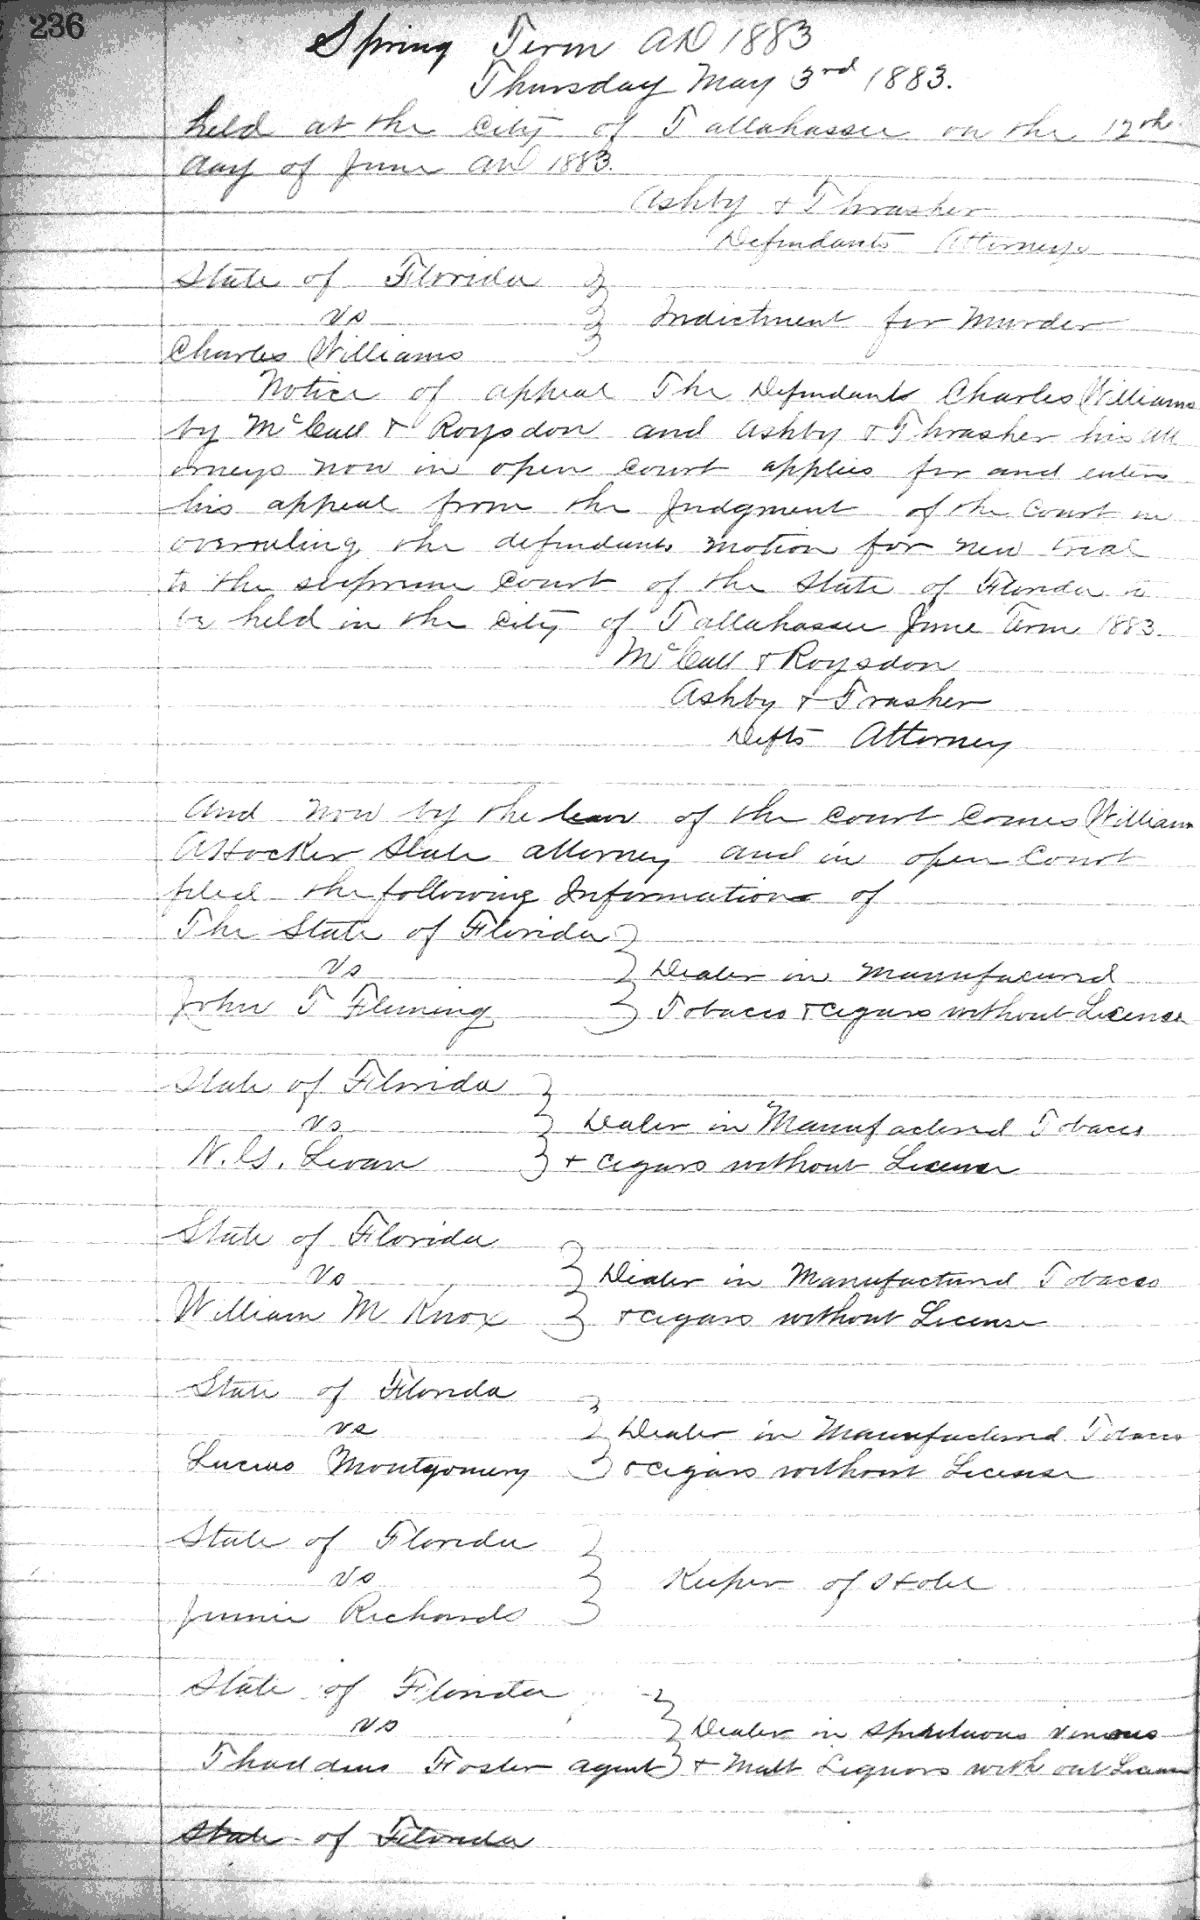 236
Spring Term AD 1883
Thursday May 3rd 1883.
held at the City of Tallahassee on the 12th
day of June AD 1883.
Ashby & Thrasher
Defendants Attorneys
State of Florida
vs
Indictment for Murder
Charles Williams
Notice of appeal The Defendants Charles Williams
by McCall & Roysdon and Ashby & Thrasher his att
orneys now in open court applies for and enters
his appeal from the Judgment of the Court in
overruling the defendants motion for new trial
to the supreme Court of the State of Florida to
be held in the City of Tallahassee June Term 1883.
McCall & Roysdon
Ashby & Trasher
Defts Attorney
And now by the leave of the court Comes William
A Hocker State attorney and in open Court
filed the following Informations of
The State of Florida
vs
Dealer in Manufacured
John T Fleming
Tobacco & cigars without License
State of Florida
vs
Dealer in Manufactured Tobacco
N. G. Levan
& cigars without License
State of Florida
Vs
Dealer in Manufactured Tobacco
William M Knox
& cigars without License
State of Florida
vs
Dealer in Manufactured Tobacco
Lucius Montgomery
& cigars without License
State of Florida
vs
Keeper of Hotel
Junie Richards
State of Florida
vs
Dealer in Spirituous Venous
Thaddeus Foster agent
& Malt Liquors with out License
State of Florida